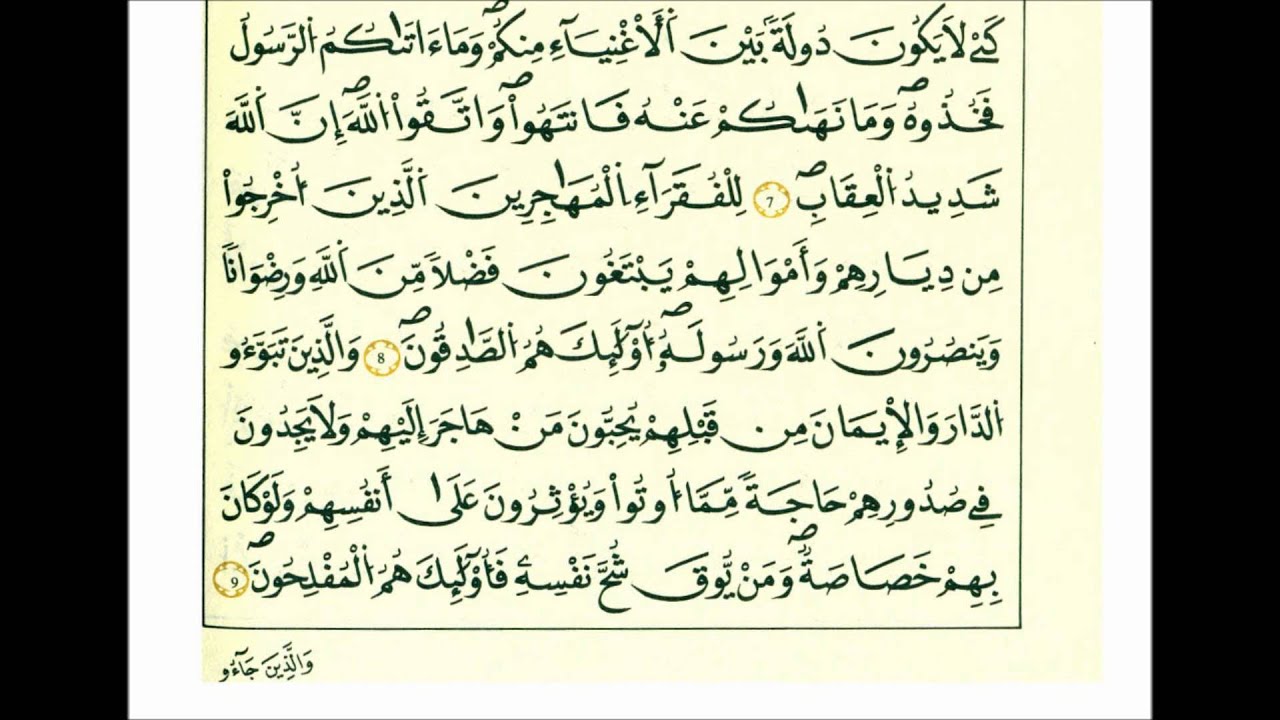 كَےْ لَا يَكُونَ دُولَةَۢ بَيْنَ اَ۬لْأَغْنِيَآءِ مِنكُمْۖ وَمَآ ءَات۪يٰكُمُ اُ۬لرَّسُولُ
فَخُذُوهُۖ وَمَا نَه۪يٰكُمْ عَنْهُ فَانتَهُواْۖ وَاتَّقُواْ اُ۬للَّهَۖ إِنَّ اَ۬للَّهَ
شَدِيدُ اُ۬لْعِقَابِۖ 7 لِلْفُقَرَآءِ اِ۬لْمُهَٰجِرِينَ اَ۬لذِينَ أُخْرِجُواْ
مِن دِيٰرِهِمْ وَأَمْوَٰلِهِمْ يَبْتَغُونَ فَضْلاٗ مِّنَ اَ۬للَّهِ وَرِضْوَٰناٗ
وَيَنصُرُونَ اَ۬للَّهَ وَرَسُولَهُۥٓۖ أُوْلَٰٓئِكَ هُمُ اُ۬لصَّٰدِقُونَۖ 8 وَالذِينَ تَبَوَّءُو
اُ۬لدَّارَ وَالْإِيمَٰنَ مِن قَبْلِهِمْ يُحِبُّونَ مَنْ هَاجَرَ إِلَيْهِمْ وَلَا يَجِدُونَ
فِے صُدُورِهِمْ حَاجَةٗ مِّمَّآ أُوتُواْ وَيُؤْثِرُونَ عَلَىٰٓ أَنفُسِهِمْ وَلَوْ كَانَ
بِهِمْ خَصَاصَةٞۖ وَمَنْ يُّوقَ شُحَّ نَفْسِهِۦ فَأُوْلَٰٓئِكَ هُمُ اُ۬لْمُفْلِحُونَۖ 9
وَالذِينَ جَآءُو